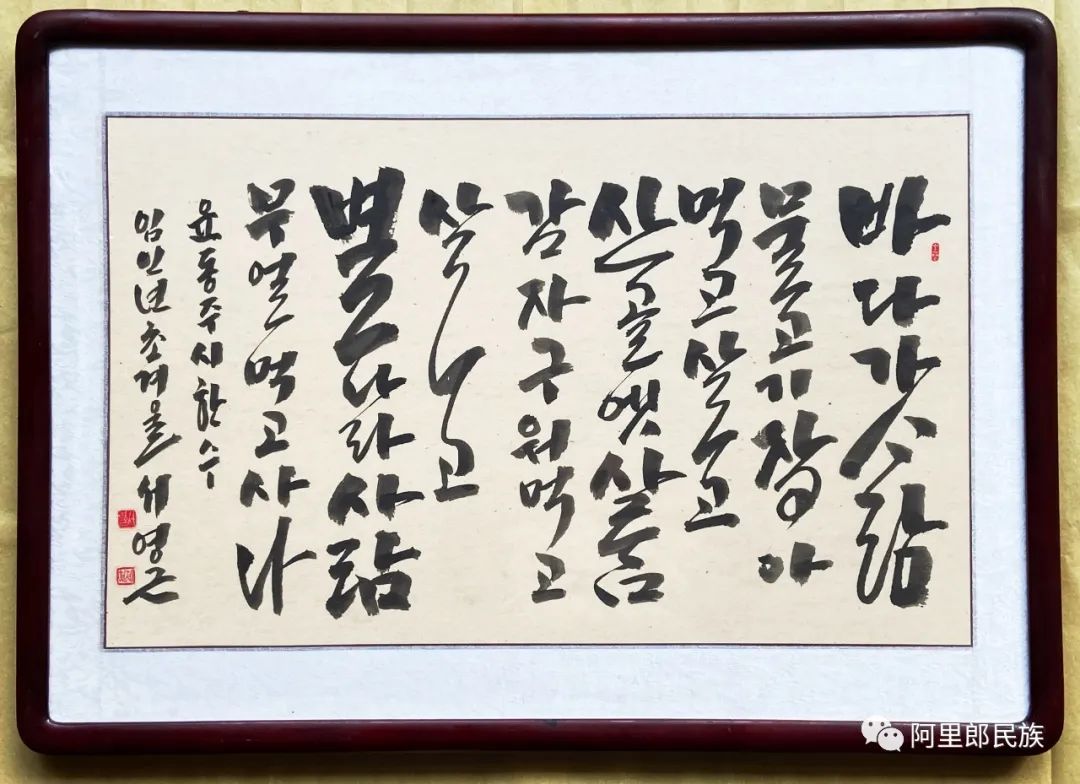 바다가사람
물고기잡아
먹고살고
산골엣사람
감자구워먹고
살고
별나라사람
무얼먹고사나
윤동주시한수
임인년초겨울 서영근
阿里郎民族